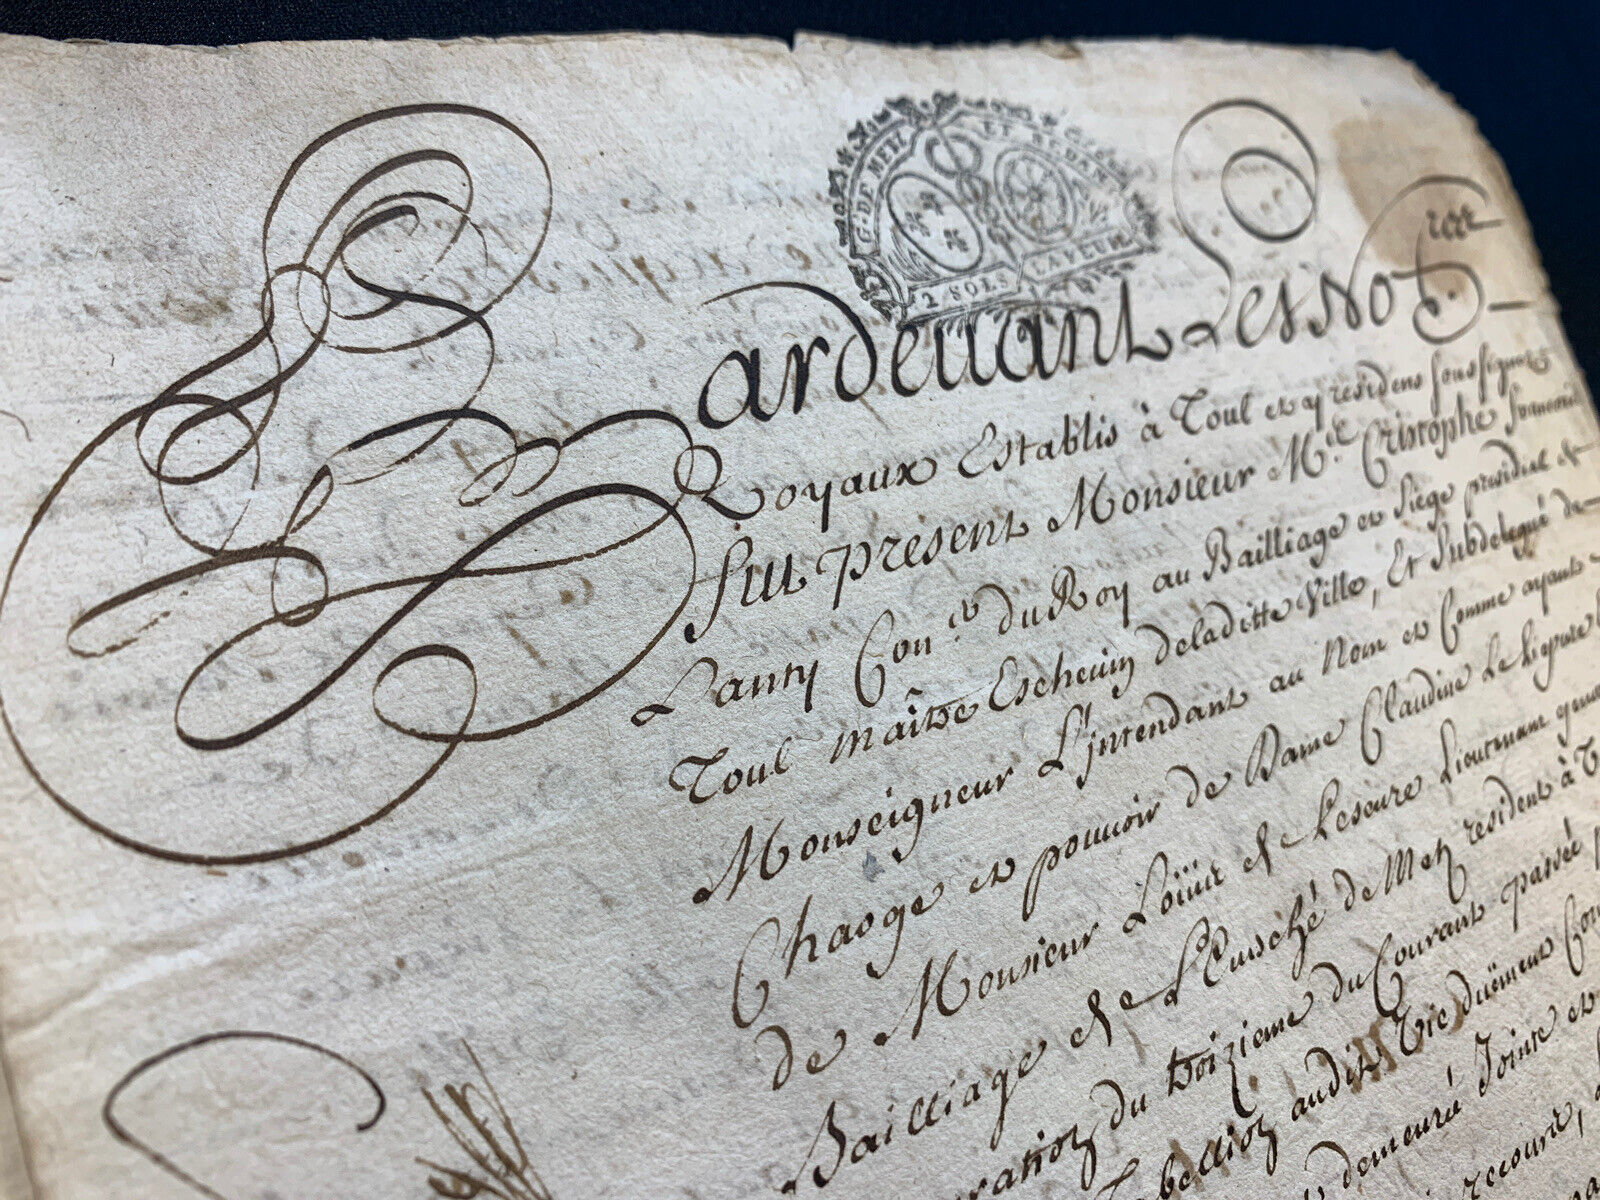 G. DE METZ ET
2 SOLS LA FEUIL
Pardeuant Les Not
Royaux Establis à Toul et y residens soussignez
fut present Monsieur Mre Cristophe francois
Lanty Coner du Roy au Bailliage et Siege presidial de
Toul maître Escheuin de la ditte Ville, Et Subdelegué de
Monseigneur L'jntendant au Nom et Comme ayant
Charge et pouuoir de Dame Claudine Le Lieure
de Monsieur de Leseure Lieutenant
Bailliage de L'Euesché de Metz resident à
du troizieme du Courant passée
audit Vic duëment
demeuré Jointe et
recourir,